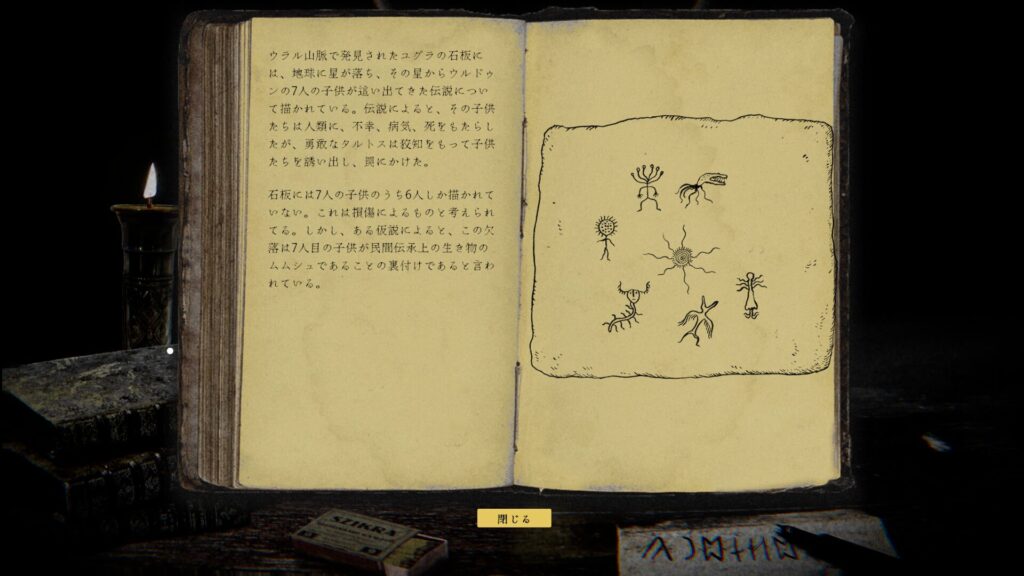 ウラル山脈で発見されたユグラの石板に
は、地球に星が落ち、その星からウルドゥ
ンの7人の子供が這い出てきた伝説につい
て描かれている。伝説によると、その子供
たちは人類に、不幸、病気、死をもたらし
たが、勇敢なタルトスは狡知をもって子供
たちを誘い出し、罠にかけた。
石板には7人の子供のうち6人しか描かれて
いない。これは損傷によるものと考えられ
てる。しかし、ある仮説によると、この欠
落は7人目の子供が民間伝承上の生き物の
ムムシュであることの裏付けであると言わ
れている。
閉じる
SZIKRA